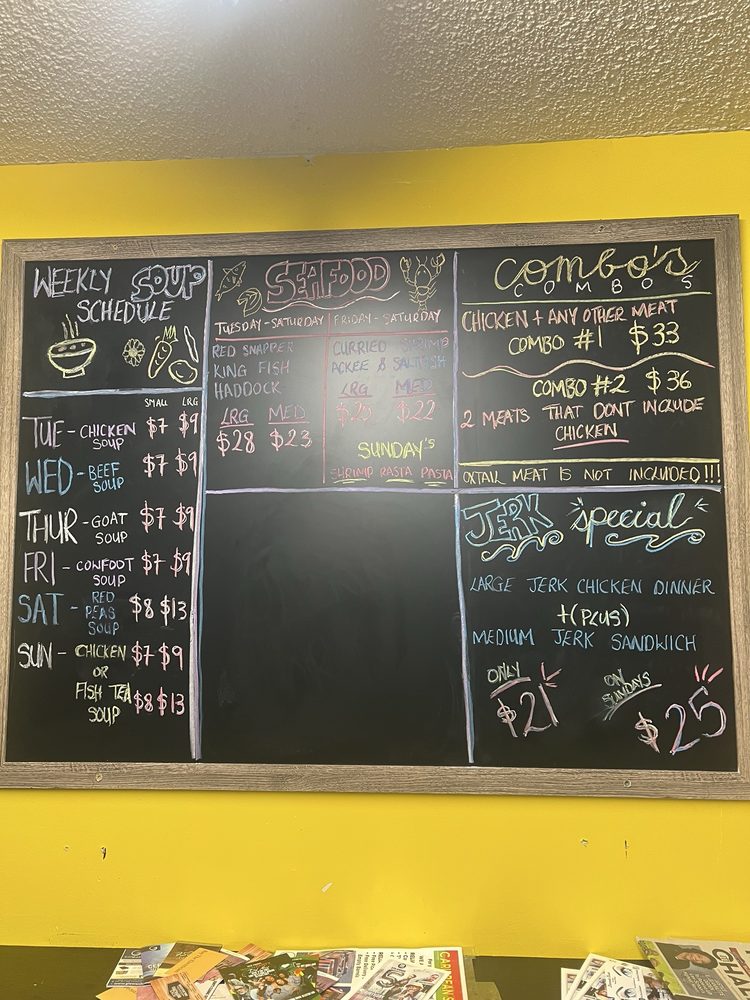 WEEKLY SOUP
SCHEDULE
SMALL LRG
TUE - CHICKEN SOUP $7 $9
WED - BEEF SOUP $7 $9
THUR - GOAT SOUP $7 $9
FRI - COWFOOT SOUP $7 $9
SAT - RED PEAS SOUP $8 $13
SUN - CHICKEN $7 $9
OR
FISH TEA SOUP $8 $13
SEAFOOD
TUESDAY - SATURDAY
RED SNAPPER
KING FISH
HADDOCK
LRG MED
$28 $23
FRIDAY - SATURDAY
CURRIED SHRIMP
ACKEE & SALTFISH
LRG MED
$22
SUNDAY'S
SHRIMP RASTA PASTA
Combo's
COMBOS
CHICKEN + ANY OTHER MEAT
COMBO #1 $33
COMBO #2 $36
2 MEATS THAT DONT INCLUDE
CHICKEN
OXTAIL MEAT IS NOT INCLUDED!!!
JERK "special"
LARGE JERK CHICKEN DINNER
+(PLUS)
MEDIUM JERK SANDWICH
ONLY $21
ON SUNDAYS $25